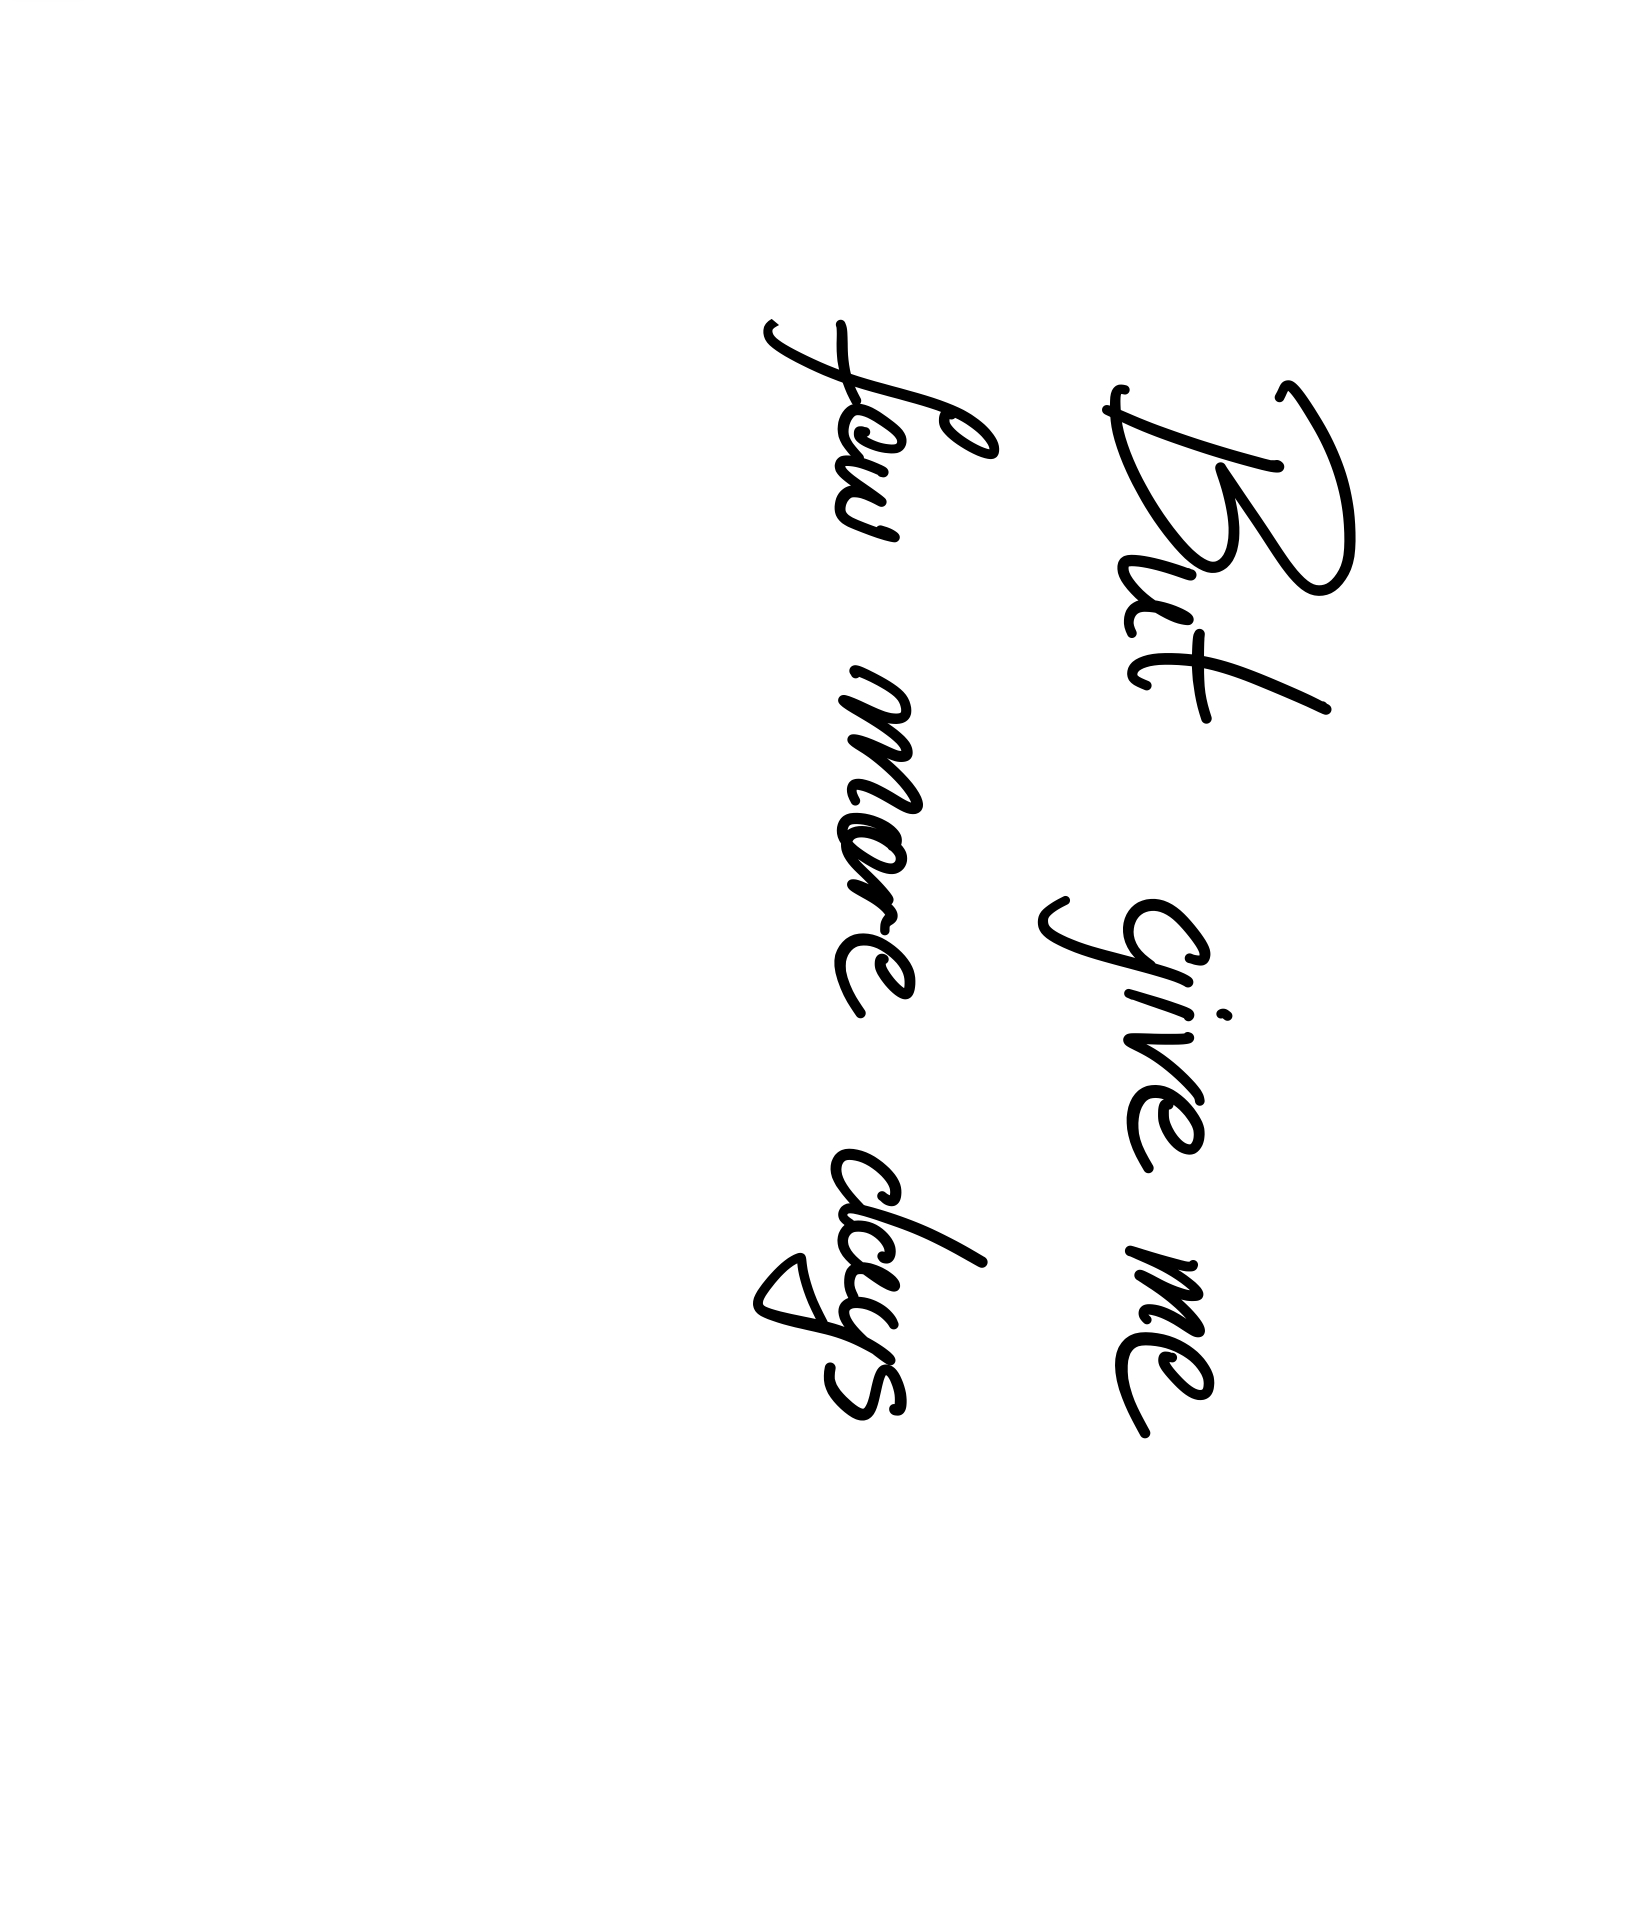 But give me
few more days